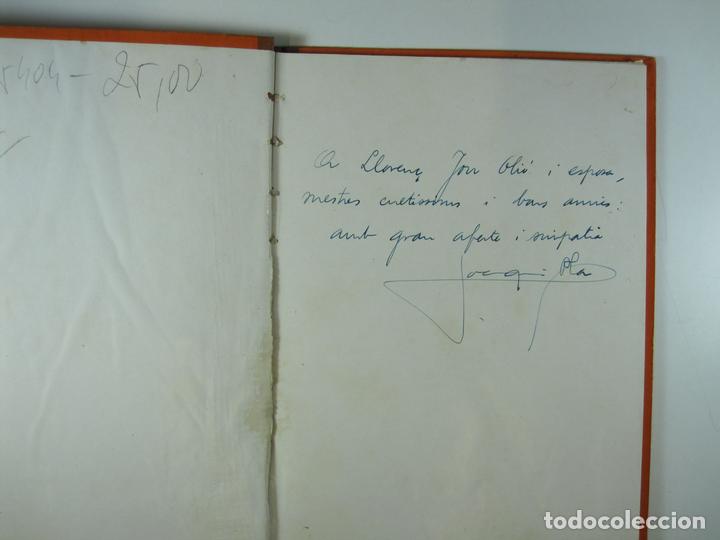 5404 - 25,00
A Llorenç Jou Olió i esposa,
mestres cultissims i bons amics:
amb gran afecte i simpatia
Joaquim Pla
todocoleccion.net